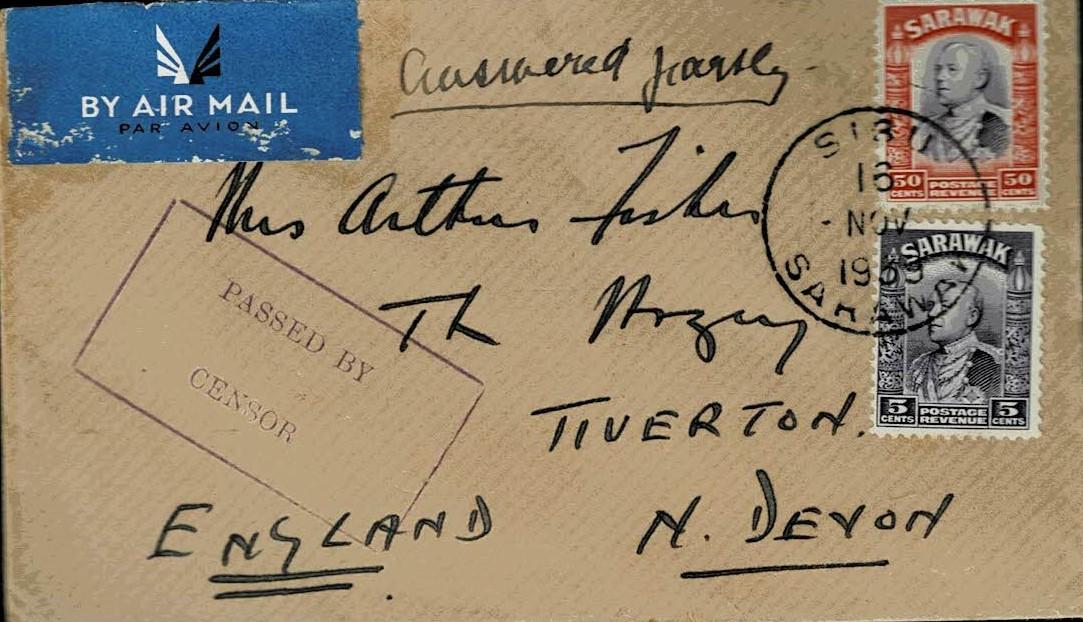 BY AIR MAIL
PAR AVION
Answered
SARAWAK
50 CENTS POSTAGE REVENUE 50 CENTS
SIBU
16
- NOV
1939
SARAWAK
Mrs Arthur Fisher
The
PASSED BY
CENSOR
SARAWAK
5 CENTS POSTAGE REVENUE 5 CENTS
TIVERTON.
ENGLAND N. DEVON